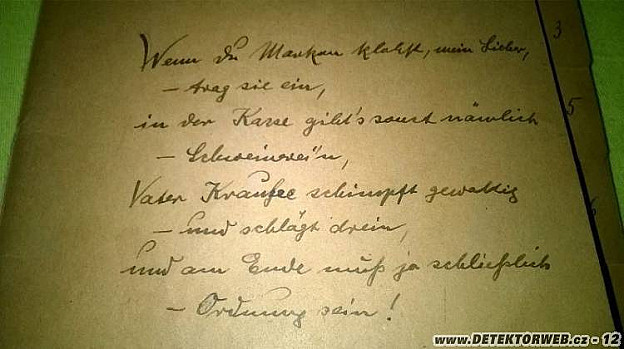 Wenn du Marken klebst, mein Lieber,
– trag sie ein,
in der Kasse gibt's sonst nämlich
– Schweinerei'n,
Vater schimpft gewaltig
– und schlägt drein,
und am Ende muß ja schließlich
– Ordnung sein!
3
5
6
www.DETEKTORWEB.cz - 12